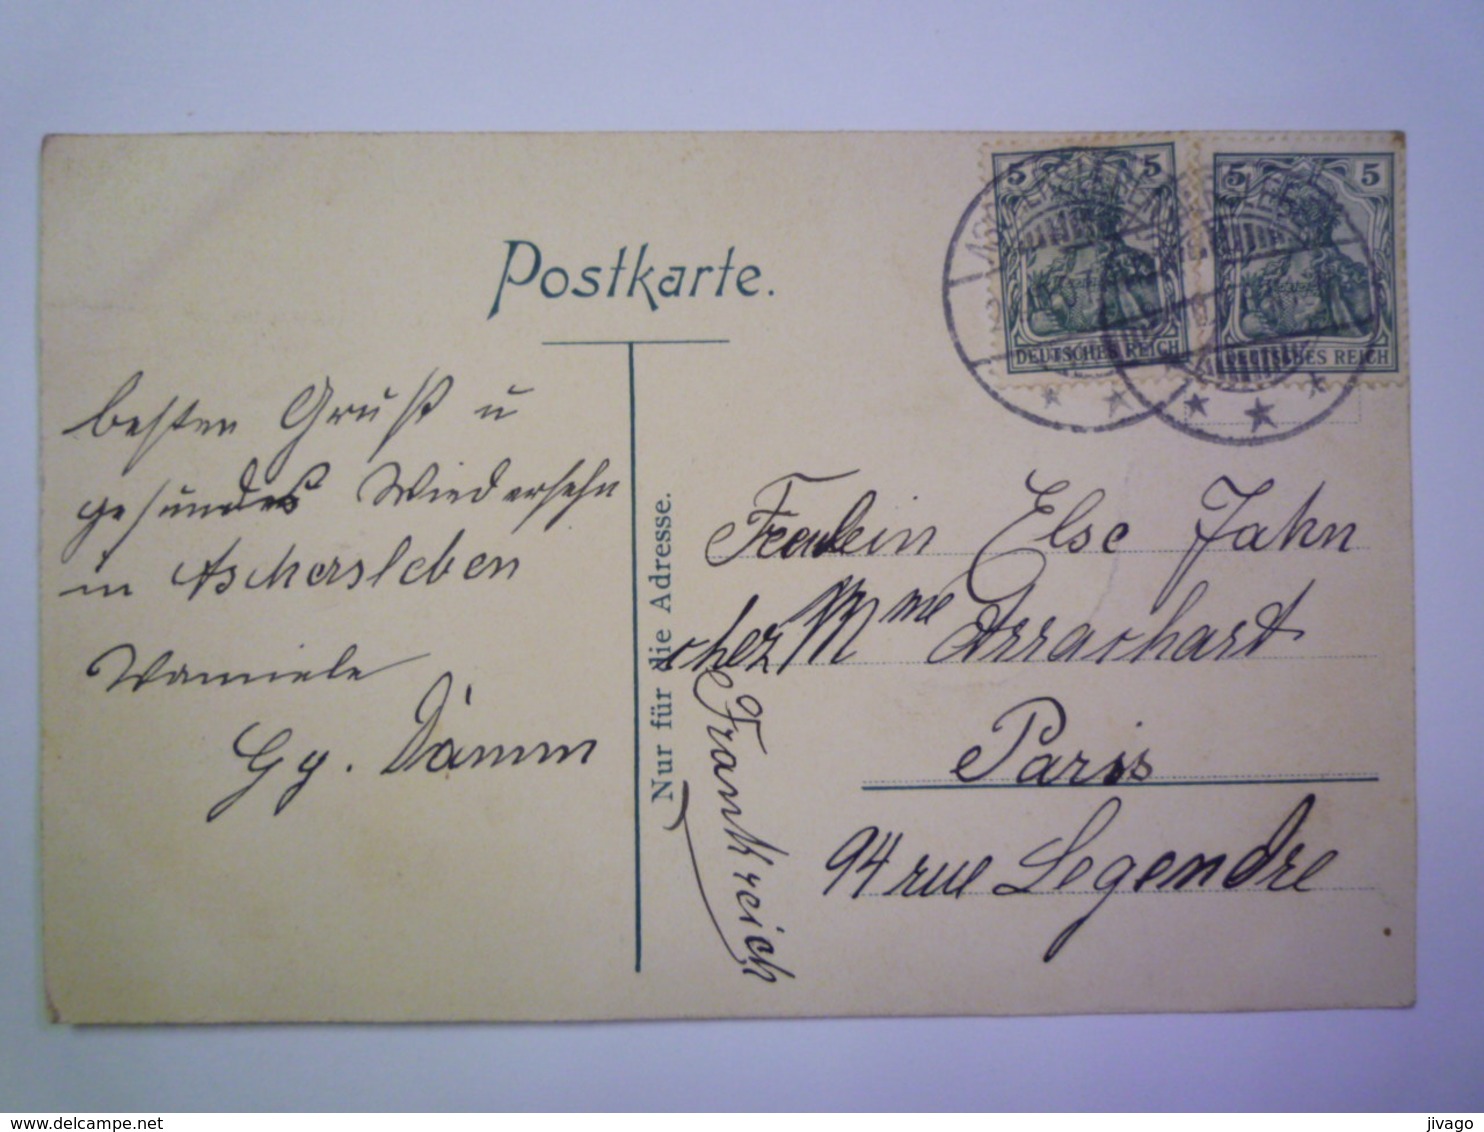 Postkarte.
5 5
DEUTSCHES REICH
5 5
DEUTSCHES REICH
besten Gruß u
gesundes Wiedersehn
in Aschersleben
Gg. Dämm
Nur für die Adresse.
Freulein Else Jahn
chez Mme Arrachart
Paris
94 rue Legendre
Frankreich
www.delcampe.net
jivago